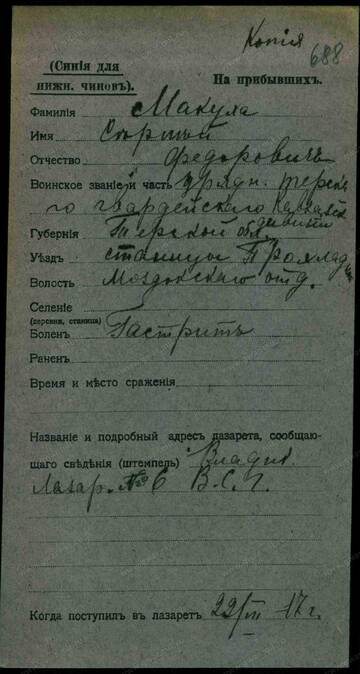 Копія
688
(Синія для
нижн. чиновъ).
На прибывшихъ.
Фамилія Макуха
Имя Сергѣй
Отчество Федоровичъ
Воинское званіе и часть урядн. терска
го гвардейскаго
Губернія Терской обл.
Уѣздъ станицы Прохлад
Волость Моздокскаго отд.
Селеніе
(деревня, станица)
Боленъ Гастритъ
Раненъ
Время и мѣсто сраженія
Названіе и подробный адресъ лазарета, сообщаю-
щаго свѣдѣнія (штемпель) Владик.
Лазар. № 6 В.С.Г.
Когда поступилъ въ лазаретъ 22/III 17 г.